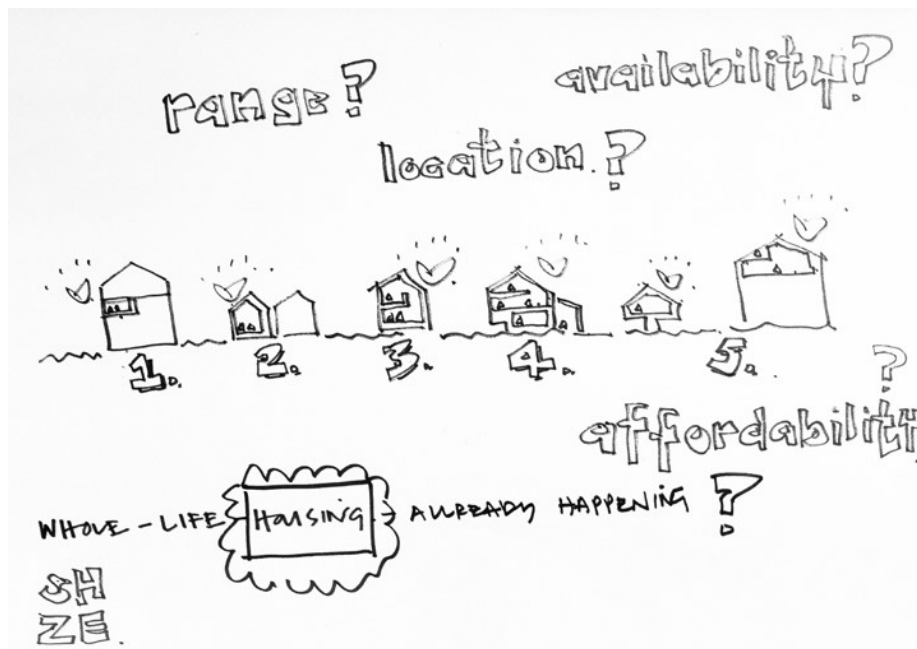 range?
availability?
location.?
1.
2.
3.
4.
5.
affordability?
WHOLE-LIFE HOUSING ALLREADY HAPPENING?
SH
ZE.